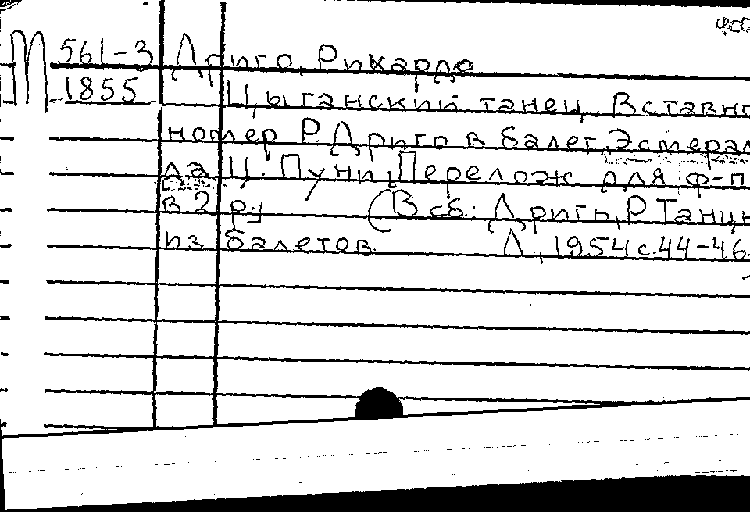 М 561-3 Дриго, Рикардо
1855 Цыганский танец. Вставно
номер Р. Дриго в балет Эсмерал
да Ц. Пуни. Перелож для ф-п
в 2 ру (В сб.: Дриго, Р. Танцы
из балетов. Л., 1954 с. 44-46